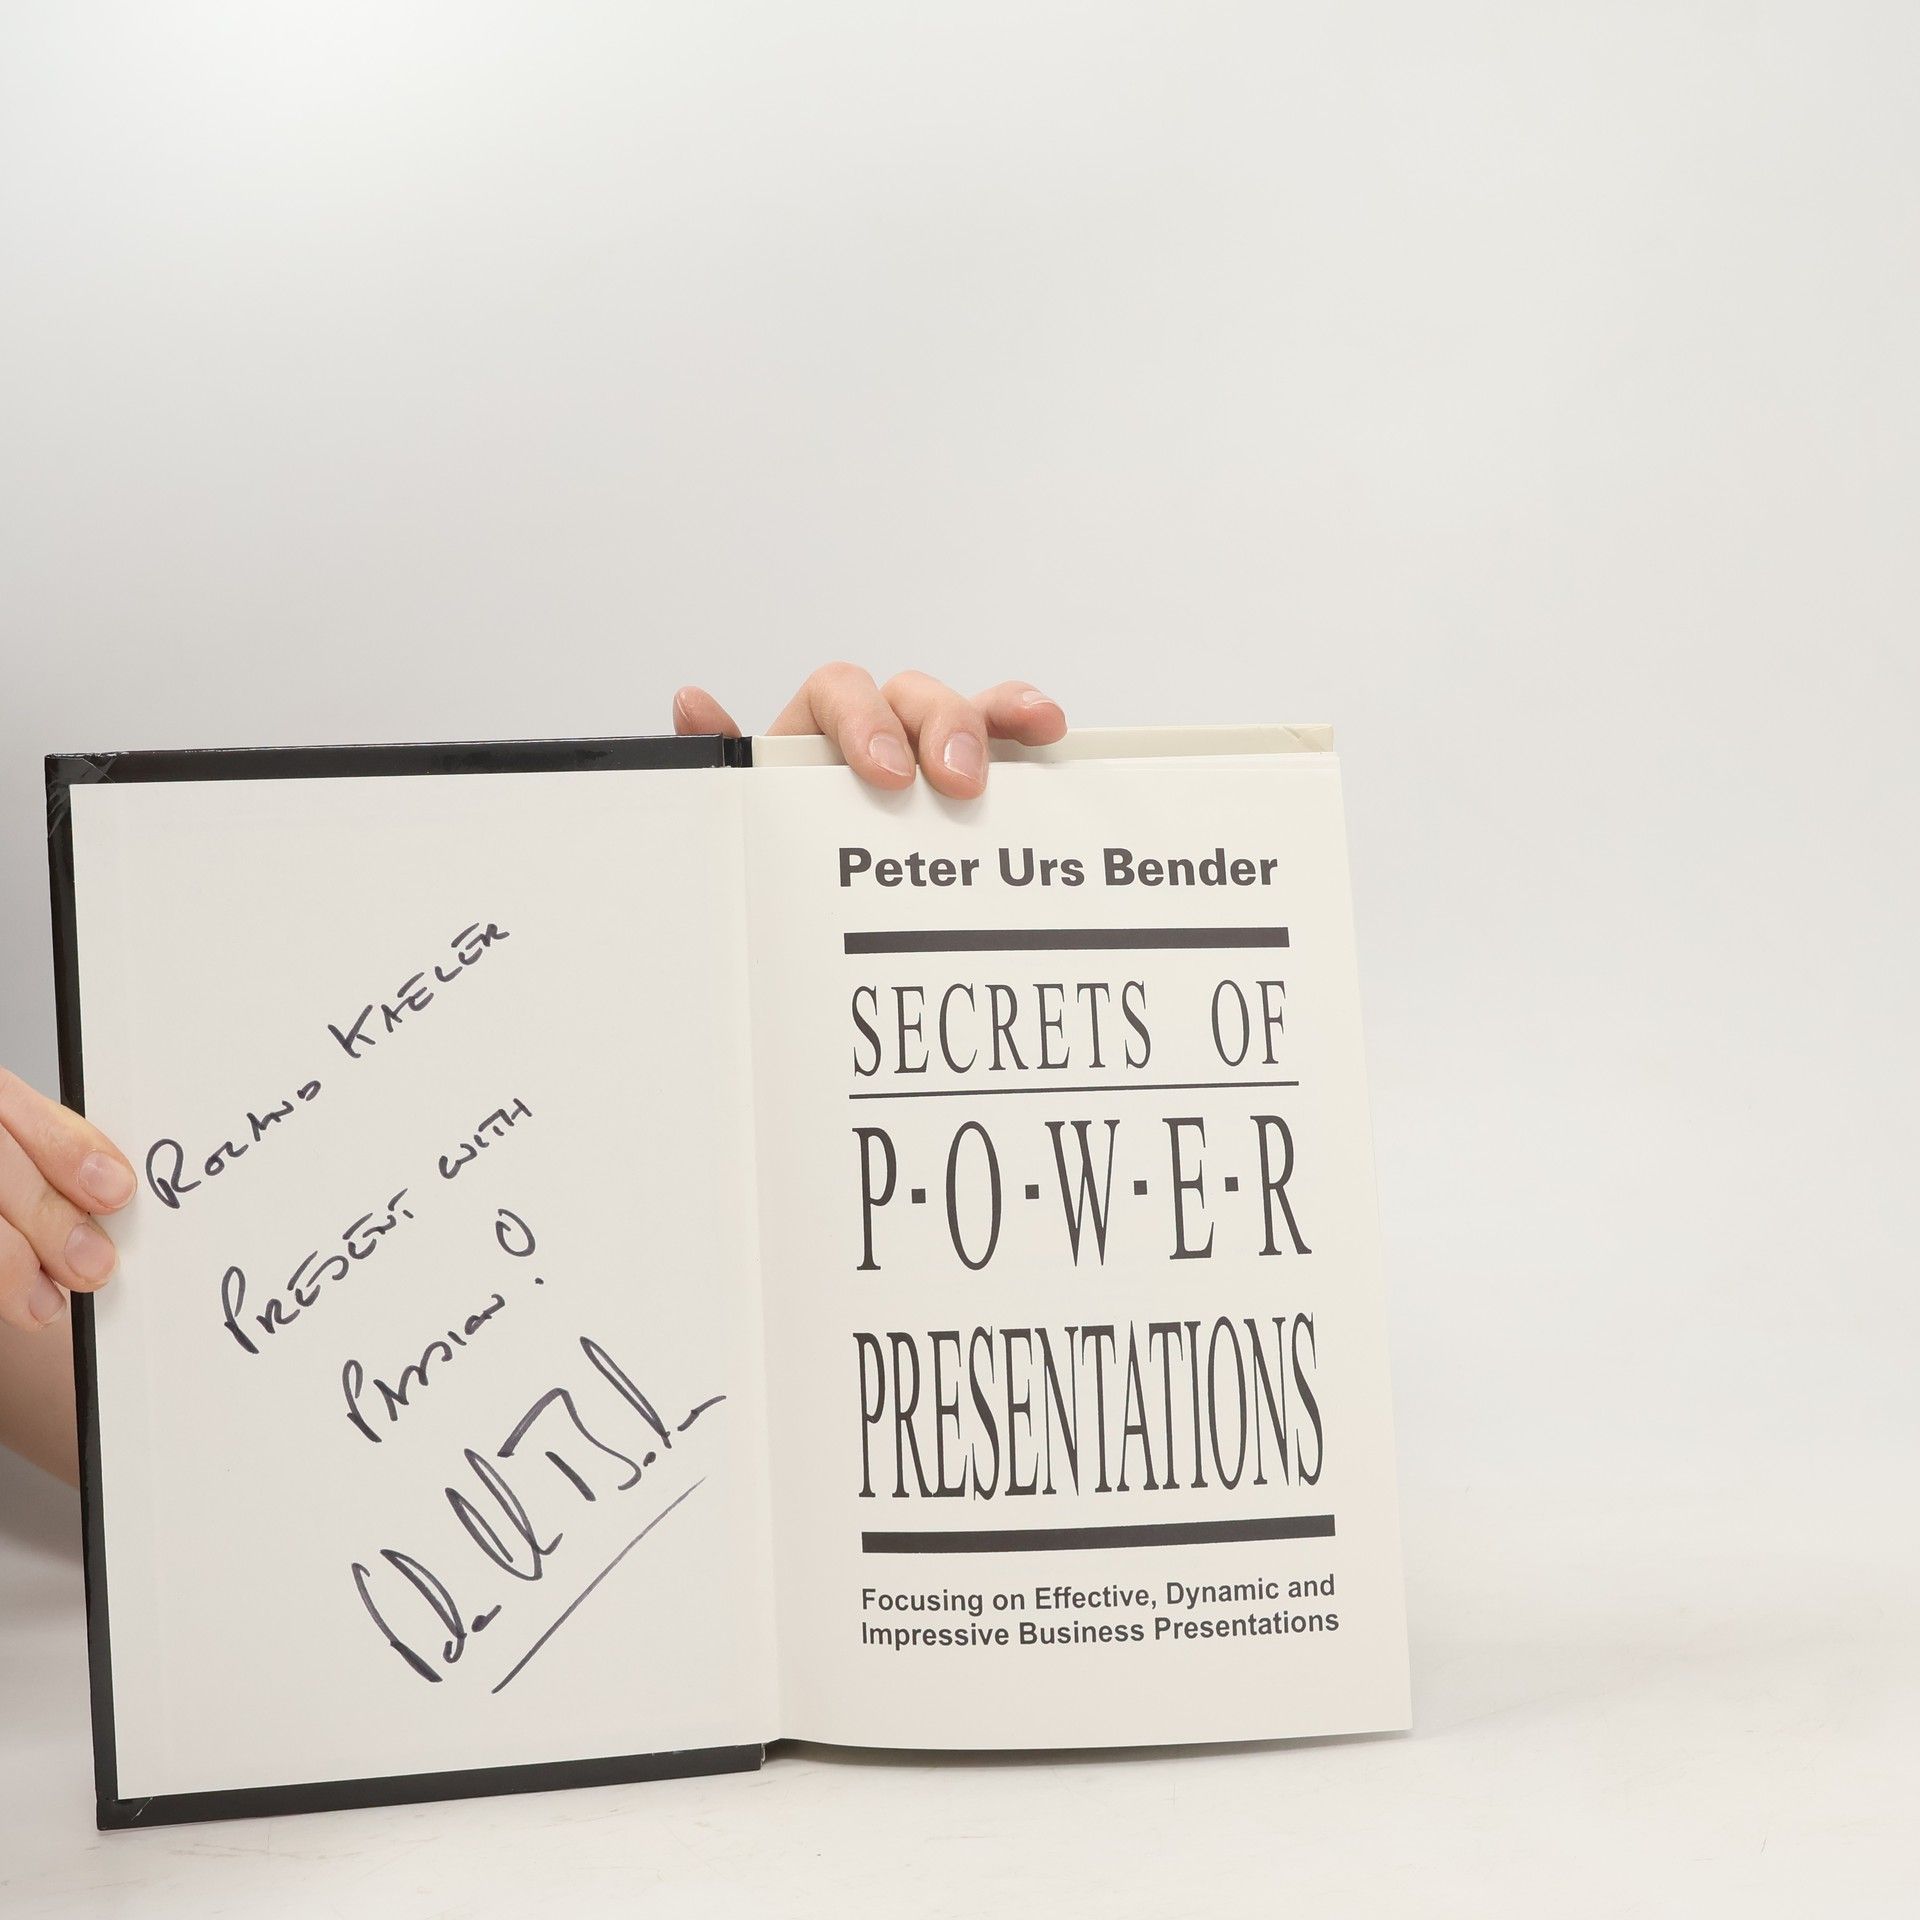 ROLAND KAELER
PRESENT WITH
PASSION!
Peter Urs Bender
SECRETS OF
P·O·W·E·R
PRESENTATIONS
Focusing on Effective, Dynamic and
Impressive Business Presentations